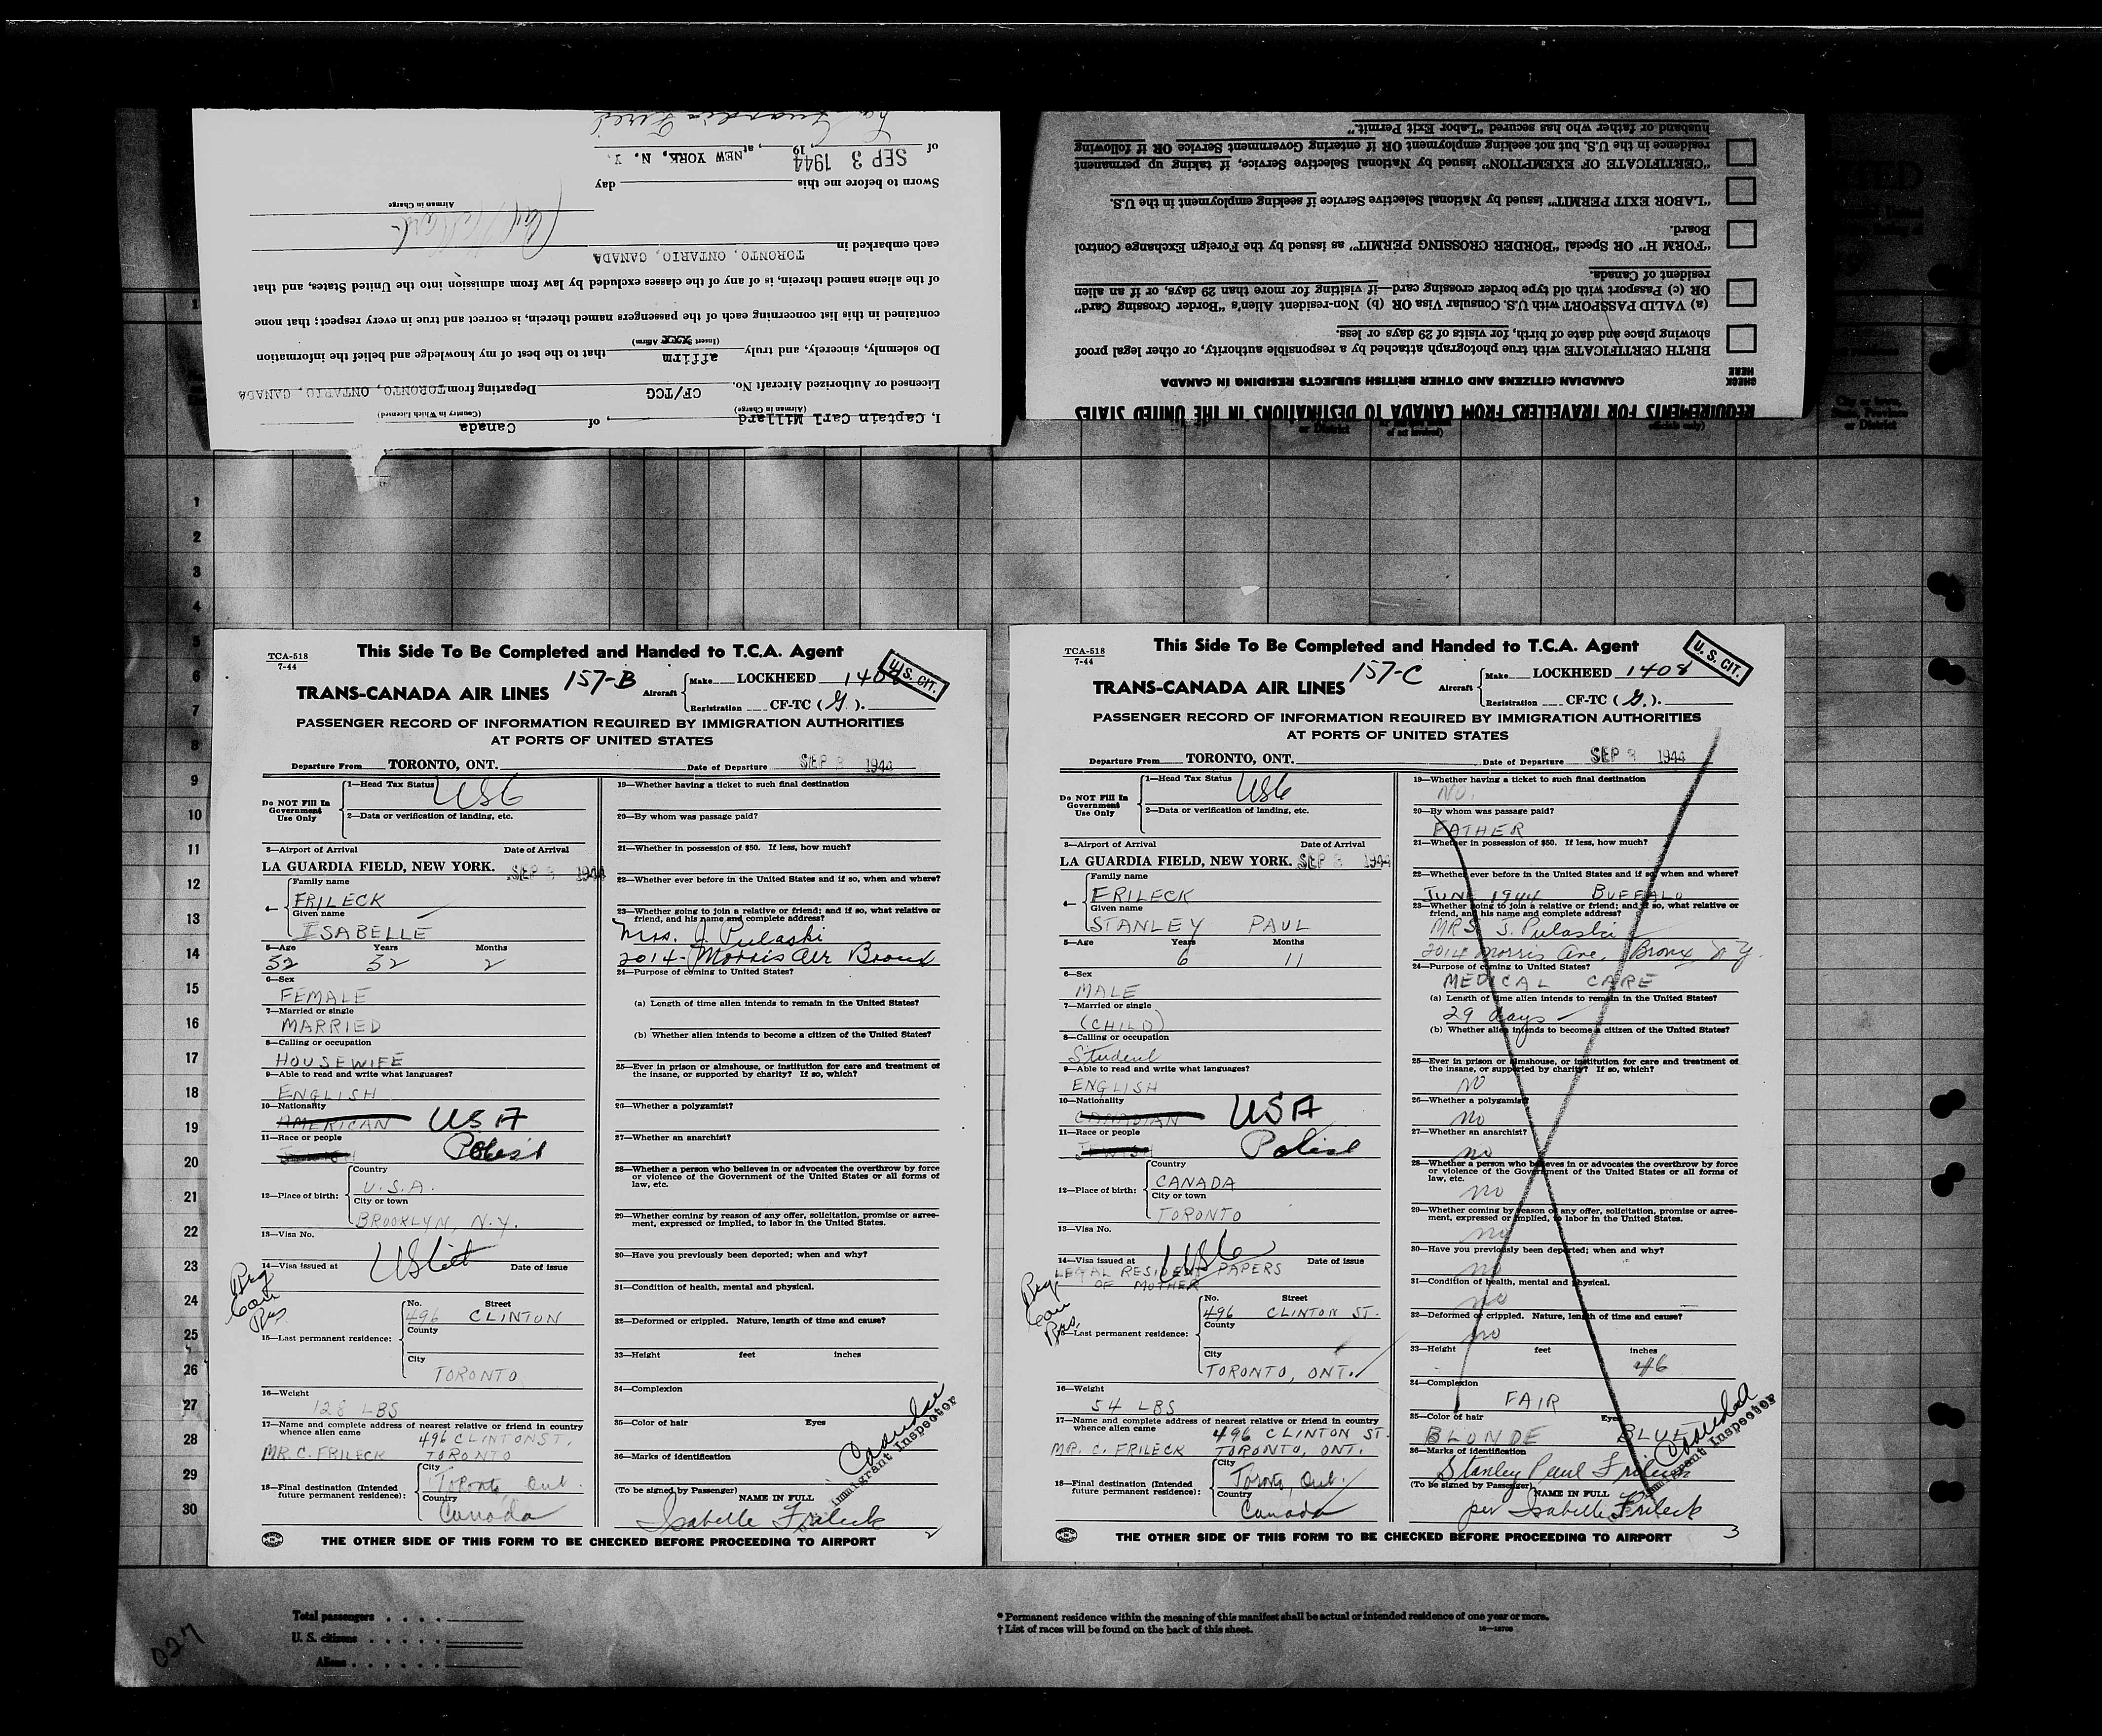 I, Captain Carl Millard of Canada
(Airman in Charge) (Country in Which Licensed)
Licensed or Authorized Aircraft No. CF/TCG Departing from TORONTO, ONTARIO, CANADA
Do solemnly, sincerely, and truly affirm that to the best of my knowledge and belief the information
(Insert Affirm)
contained in this list concerning each of the passengers named therein, is correct and true in every respect; that none
of the aliens named therein, is of any of the classes excluded by law from admission into the United States, and that
each embarked in TORONTO, ONTARIO, CANADA
Airman in Charge
Sworn to before me this day
of SEP 3 1944 19 , at NEW YORK, N. Y.
La Guardia Field
REQUIREMENTS FOR TRAVELLERS FROM CANADA TO DESTINATIONS IN THE UNITED STATES
CHECK HERE
CANADIAN CITIZENS AND OTHER BRITISH SUBJECTS RESIDING IN CANADA
BIRTH CERTIFICATE with true photograph attached by a responsible authority, or other legal proof
showing place and date of birth, for visits of 29 days or less.
(a) VALID PASSPORT with U.S. Consular Visa OR (b) Non-resident Alien's "Border Crossing Card"
OR (c) Passport with old type border crossing card—if visiting for more than 29 days, or if an alien
resident of Canada.
"FORM H" OR Special "BORDER CROSSING PERMIT" as issued by the Foreign Exchange Control
Board.
"LABOR EXIT PERMIT" issued by National Selective Service if seeking employment in the U.S.
"CERTIFICATE OF EXEMPTION" issued by National Selective Service, if taking up permanent
residence in the U.S. but not seeking employment OR if entering Government Service OR if following
husband or father who has secured "Labor Exit Permit."
City or town,
State, Province
or District
1
2
3
4
5
6
7
8
9
10
11
12
13
14
15
16
17
18
19
20
21
22
23
24
25
26
27
28
29
30
TCA-518
7-44
This Side To Be Completed and Handed to T.C.A. Agent
U. S. CIT.
TRANS-CANADA AIR LINES 157-B Aircraft Make LOCKHEED 1408
Registration CF-TC ( G. ).
PASSENGER RECORD OF INFORMATION REQUIRED BY IMMIGRATION AUTHORITIES
AT PORTS OF UNITED STATES
Departure From TORONTO, ONT. Date of Departure SEP 3 1944
Do NOT Fill In
Government
Use Only
1—Head Tax Status USC
2—Data or verification of landing, etc.
3—Airport of Arrival Date of Arrival
LA GUARDIA FIELD, NEW YORK. SEP 3 1944
4— Family name
FRILECK
Given name
ISABELLE
5—Age Years Months
32 32 2
6—Sex
FEMALE
7—Married or single
MARRIED
8—Calling or occupation
HOUSEWIFE
9—Able to read and write what languages?
ENGLISH
10—Nationality
AMERICAN USA
11—Race or people
Polish
12—Place of birth: Country
U.S.A.
City or town
BROOKLYN, N.Y.
13—Visa No.
US Cit
14—Visa issued at Date of issue
15—Last permanent residence: No. Street
496 CLINTON
County
City
TORONTO
16—Weight
128 LBS
17—Name and complete address of nearest relative or friend in country
whence alien came 496 CLINTON ST.
MR. C. FRILECK TORONTO
18—Final destination (Intended
future permanent residence): City
Toronto, Ont.
Country
Canada
19—Whether having a ticket to such final destination
20—By whom was passage paid?
21—Whether in possession of $50. If less, how much?
22—Whether ever before in the United States and if so, when and where?
23—Whether going to join a relative or friend; and if so, what relative or
friend, and his name and complete address?
Mrs. J. Pulaski
2014 - Morris Ave Bronx
24—Purpose of coming to United States?
(a) Length of time alien intends to remain in the United States?
(b) Whether alien intends to become a citizen of the United States?
25—Ever in prison or almshouse, or institution for care and treatment of
the insane, or supported by charity? If so, which?
26—Whether a polygamist?
27—Whether an anarchist?
28—Whether a person who believes in or advocates the overthrow by force
or violence of the Government of the United States or all forms of
law, etc.
29—Whether coming by reason of any offer, solicitation, promise or agree-
ment, expressed or implied, to labor in the United States.
30—Have you previously been deported; when and why?
31—Condition of health, mental and physical.
32—Deformed or crippled. Nature, length of time and cause?
33—Height feet inches
34—Complexion
35—Color of hair Eyes
36—Marks of identification
Immigrant Inspector
(To be signed by Passenger) NAME IN FULL
Isabelle Frileck
2
THE OTHER SIDE OF THIS FORM TO BE CHECKED BEFORE PROCEEDING TO AIRPORT
TCA-518
7-44
This Side To Be Completed and Handed to T.C.A. Agent
U. S. CIT.
TRANS-CANADA AIR LINES 157-C Aircraft Make LOCKHEED 1408
Registration CF-TC ( G. ).
PASSENGER RECORD OF INFORMATION REQUIRED BY IMMIGRATION AUTHORITIES
AT PORTS OF UNITED STATES
Departure From TORONTO, ONT. Date of Departure SEP 3 1944
Do NOT Fill In
Government
Use Only
1—Head Tax Status USC
2—Data or verification of landing, etc.
3—Airport of Arrival Date of Arrival
LA GUARDIA FIELD, NEW YORK. SEP 3 1944
4— Family name
FRILECK
Given name
STANLEY PAUL
5—Age Years Months
6 11
6—Sex
MALE
7—Married or single
(CHILD)
8—Calling or occupation
Student
9—Able to read and write what languages?
ENGLISH
10—Nationality
CANADIAN USA
11—Race or people
JEWISH Polish
12—Place of birth: Country
CANADA
City or town
TORONTO
13—Visa No.
USC
14—Visa issued at Date of issue
LEGAL RESIDENT PAPERS
OF MOTHER
15—Last permanent residence: No. Street
496 CLINTON ST.
County
City
TORONTO, ONT.
16—Weight
54 LBS
17—Name and complete address of nearest relative or friend in country
whence alien came 496 CLINTON ST.
MR. C. FRILECK TORONTO, ONT.
18—Final destination (Intended
future permanent residence): City
Toronto, Ont.
Country
Canada
19—Whether having a ticket to such final destination
NO.
20—By whom was passage paid?
FATHER
21—Whether in possession of $50. If less, how much?
22—Whether ever before in the United States and if so, when and where?
JUNE 1944 BUFFALO
23—Whether going to join a relative or friend; and if so, what relative or
friend, and his name and complete address?
MRS J. Pulaski
2014 Morris Ave. Bronx N.Y.
24—Purpose of coming to United States?
MEDICAL CARE
(a) Length of time alien intends to remain in the United States?
29 days
(b) Whether alien intends to become a citizen of the United States?
25—Ever in prison or almshouse, or institution for care and treatment of
the insane, or supported by charity? If so, which?
NO
26—Whether a polygamist?
no
27—Whether an anarchist?
no
28—Whether a person who believes in or advocates the overthrow by force
or violence of the Government of the United States or all forms of
law, etc.
no
29—Whether coming by reason of any offer, solicitation, promise or agree-
ment, expressed or implied, to labor in the United States.
no
30—Have you previously been deported; when and why?
no
31—Condition of health, mental and physical.
no
32—Deformed or crippled. Nature, length of time and cause?
no
33—Height feet inches
46
34—Complexion
FAIR
35—Color of hair Eyes
BLONDE BLUE
36—Marks of identification
Immigrant Inspector
Stanley Paul Frileck
(To be signed by Passenger) NAME IN FULL
per Isabelle Frileck
3
THE OTHER SIDE OF THIS FORM TO BE CHECKED BEFORE PROCEEDING TO AIRPORT
Total passengers
U. S. citizens
Aliens
* Permanent residence within the meaning of this manifest shall be actual or intended residence of one year or more.
† List of races will be found on the back of this sheet.
027